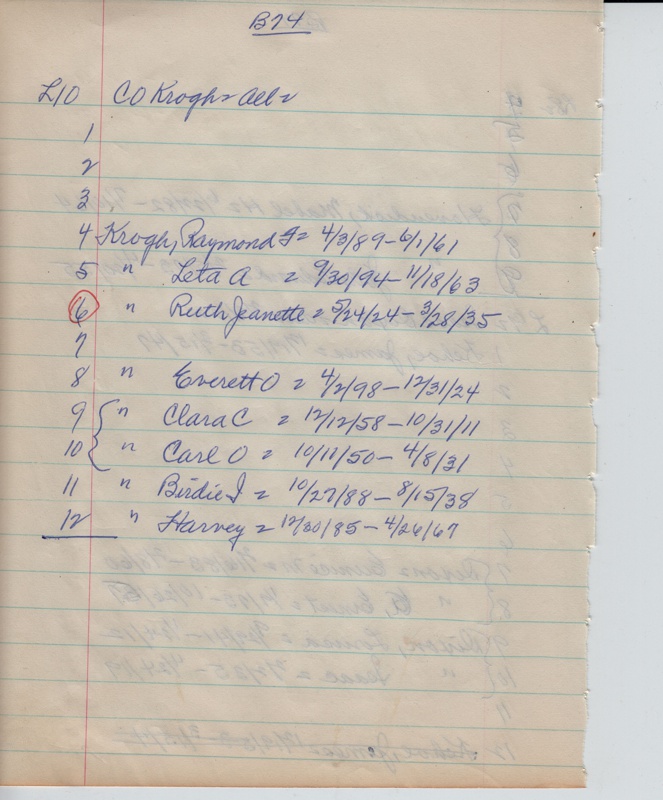 B74
L10 CO Krogh = All =
1
2
3
4 Krogh, Raymond F = 4/3/89 - 6/1/61
5 " Leta A = 9/30/94 - 11/18/63
6 " Ruth Jeanette = 5/24/24 - 3/28/35
7
8 " Everett O = 4/2/98 - 12/31/24
9 { " Clara C = 12/12/58 - 10/31/11
10 { " Carl O = 10/11/50 - 4/8/31
11 " Birdie I = 10/27/88 - 8/15/38
12 " Harvey = 12/30/85 - 4/26/67